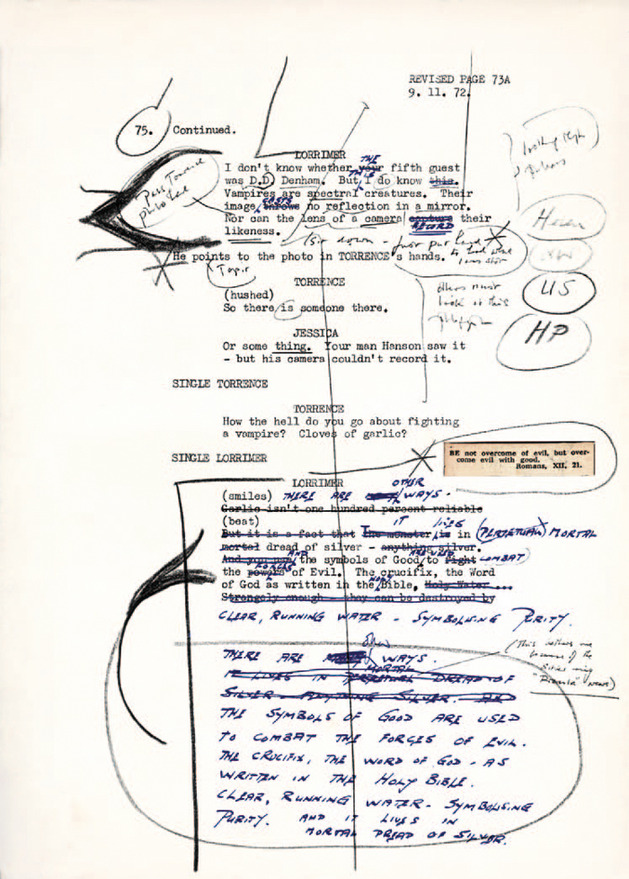 REVISED PAGE 73A
9. 11. 72.
75. Continued.
LORRIMER
THE
I don't know whether your fifth guest
was D.D Denham. But I do know this.
Vampires are spectral creatures. Their
CASTS
image throws no reflection in a mirror.
Nor can the lens of a camera capture their
RECORD
likeness.
Pass Torrence photo
just put hand
He points to the photo in TORRENCE's hands.
Topic
TORRENCE
(hushed)
So there is someone there.
others must
look at this
US
HP
JESSICA
Or some thing. Your man Hanson saw it
- but his camera couldn't record it.
SINGLE TORRENCE
TORRENCE
How the hell do you go about fighting
a vampire? Cloves of garlic?
BE not overcome of evil, but over-
come evil with good.
Romans, XII, 21.
SINGLE LORRIMER
LORRIMER
OTHER
(smiles) THERE ARE WAYS.
Garlic isn't one hundred percent reliable
(beat)
IT LIVES
But it is a fact that The monster is in (PERPETUAL) MORTAL
mortal dread of silver - anything silver.
AND ARE USED
And you use the symbols of Good to fight COMBAT)
FORCES
the powers of Evil. The crucifix, the Word
HOLY
of God as written in the Bible, Holy Water ...
Strangely enough they can be destroyed by
CLEAR, RUNNING WATER - SYMBOLISING PURITY.
THERE ARE WAYS.
MORTAL
IT LIVES IN PERPETUAL DREAD OF
SILVER - ANYTHING SILVER. AND
THE SYMBOLS OF GOOD ARE USED
TO COMBAT THE FORCES OF EVIL.
THE CRUCIFIX, THE WORD OF GOD - AS
WRITTEN IN THE HOLY BIBLE.
CLEAR, RUNNING WATER - SYMBOLISING
PURITY. AND IT LIVES IN
MORTAL DREAD OF SILVER.
(This
because of the
"Dracula"